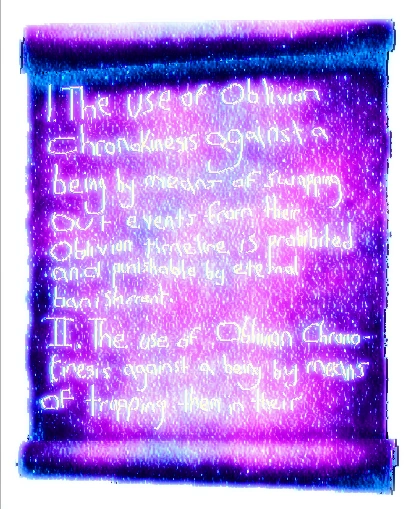 I. The use of Oblivion
Chronokinesis against a
being by means of swapping
out events from their
Oblivion timeline is prohibited
and punishable by eternal
banishment.
II. The use of Oblivion Chrono-
kinesis against a being by means
of trapping them in their